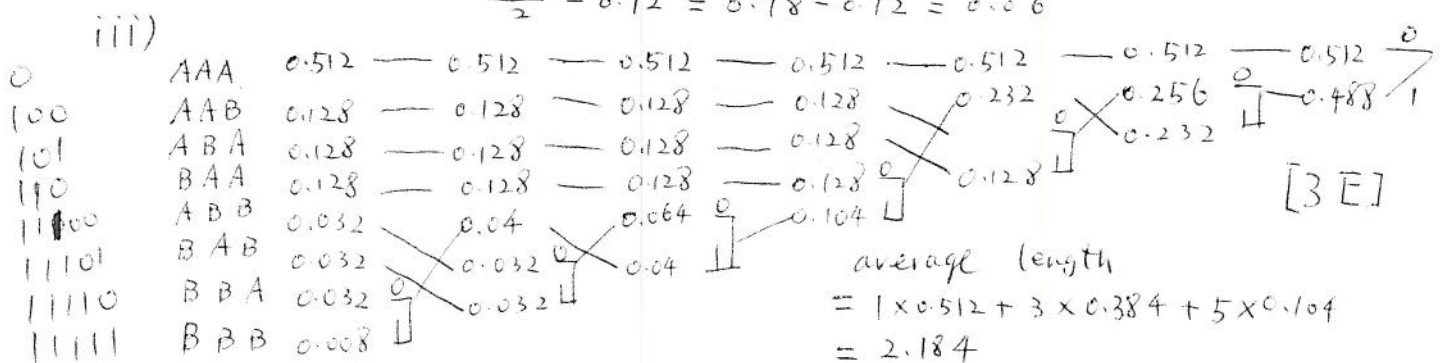 /2 - 0.12 = 0.18 - 0.12 = 0.06
iii)
0 AAA 0.512 — 0.512 — 0.512 — 0.512 — 0.512 — 0.512 — 0.512 0
100 AAB 0.128 — 0.128 — 0.128 — 0.128 0.232 0.256 0 0.488 1
101 ABA 0.128 — 0.128 — 0.128 — 0.128 0 0.232 1
110 BAA 0.128 — 0.128 — 0.128 — 0.128 0 0.128 1 [3 E]
11100 ABB 0.032 0.04 0.064 0 0.104 1
11101 BAB 0.032 0.032 0 0.04 1 average length
11110 BBA 0.032 0 0.032 1 = 1 x 0.512 + 3 x 0.384 + 5 x 0.104
11111 BBB 0.008 1 = 2.184